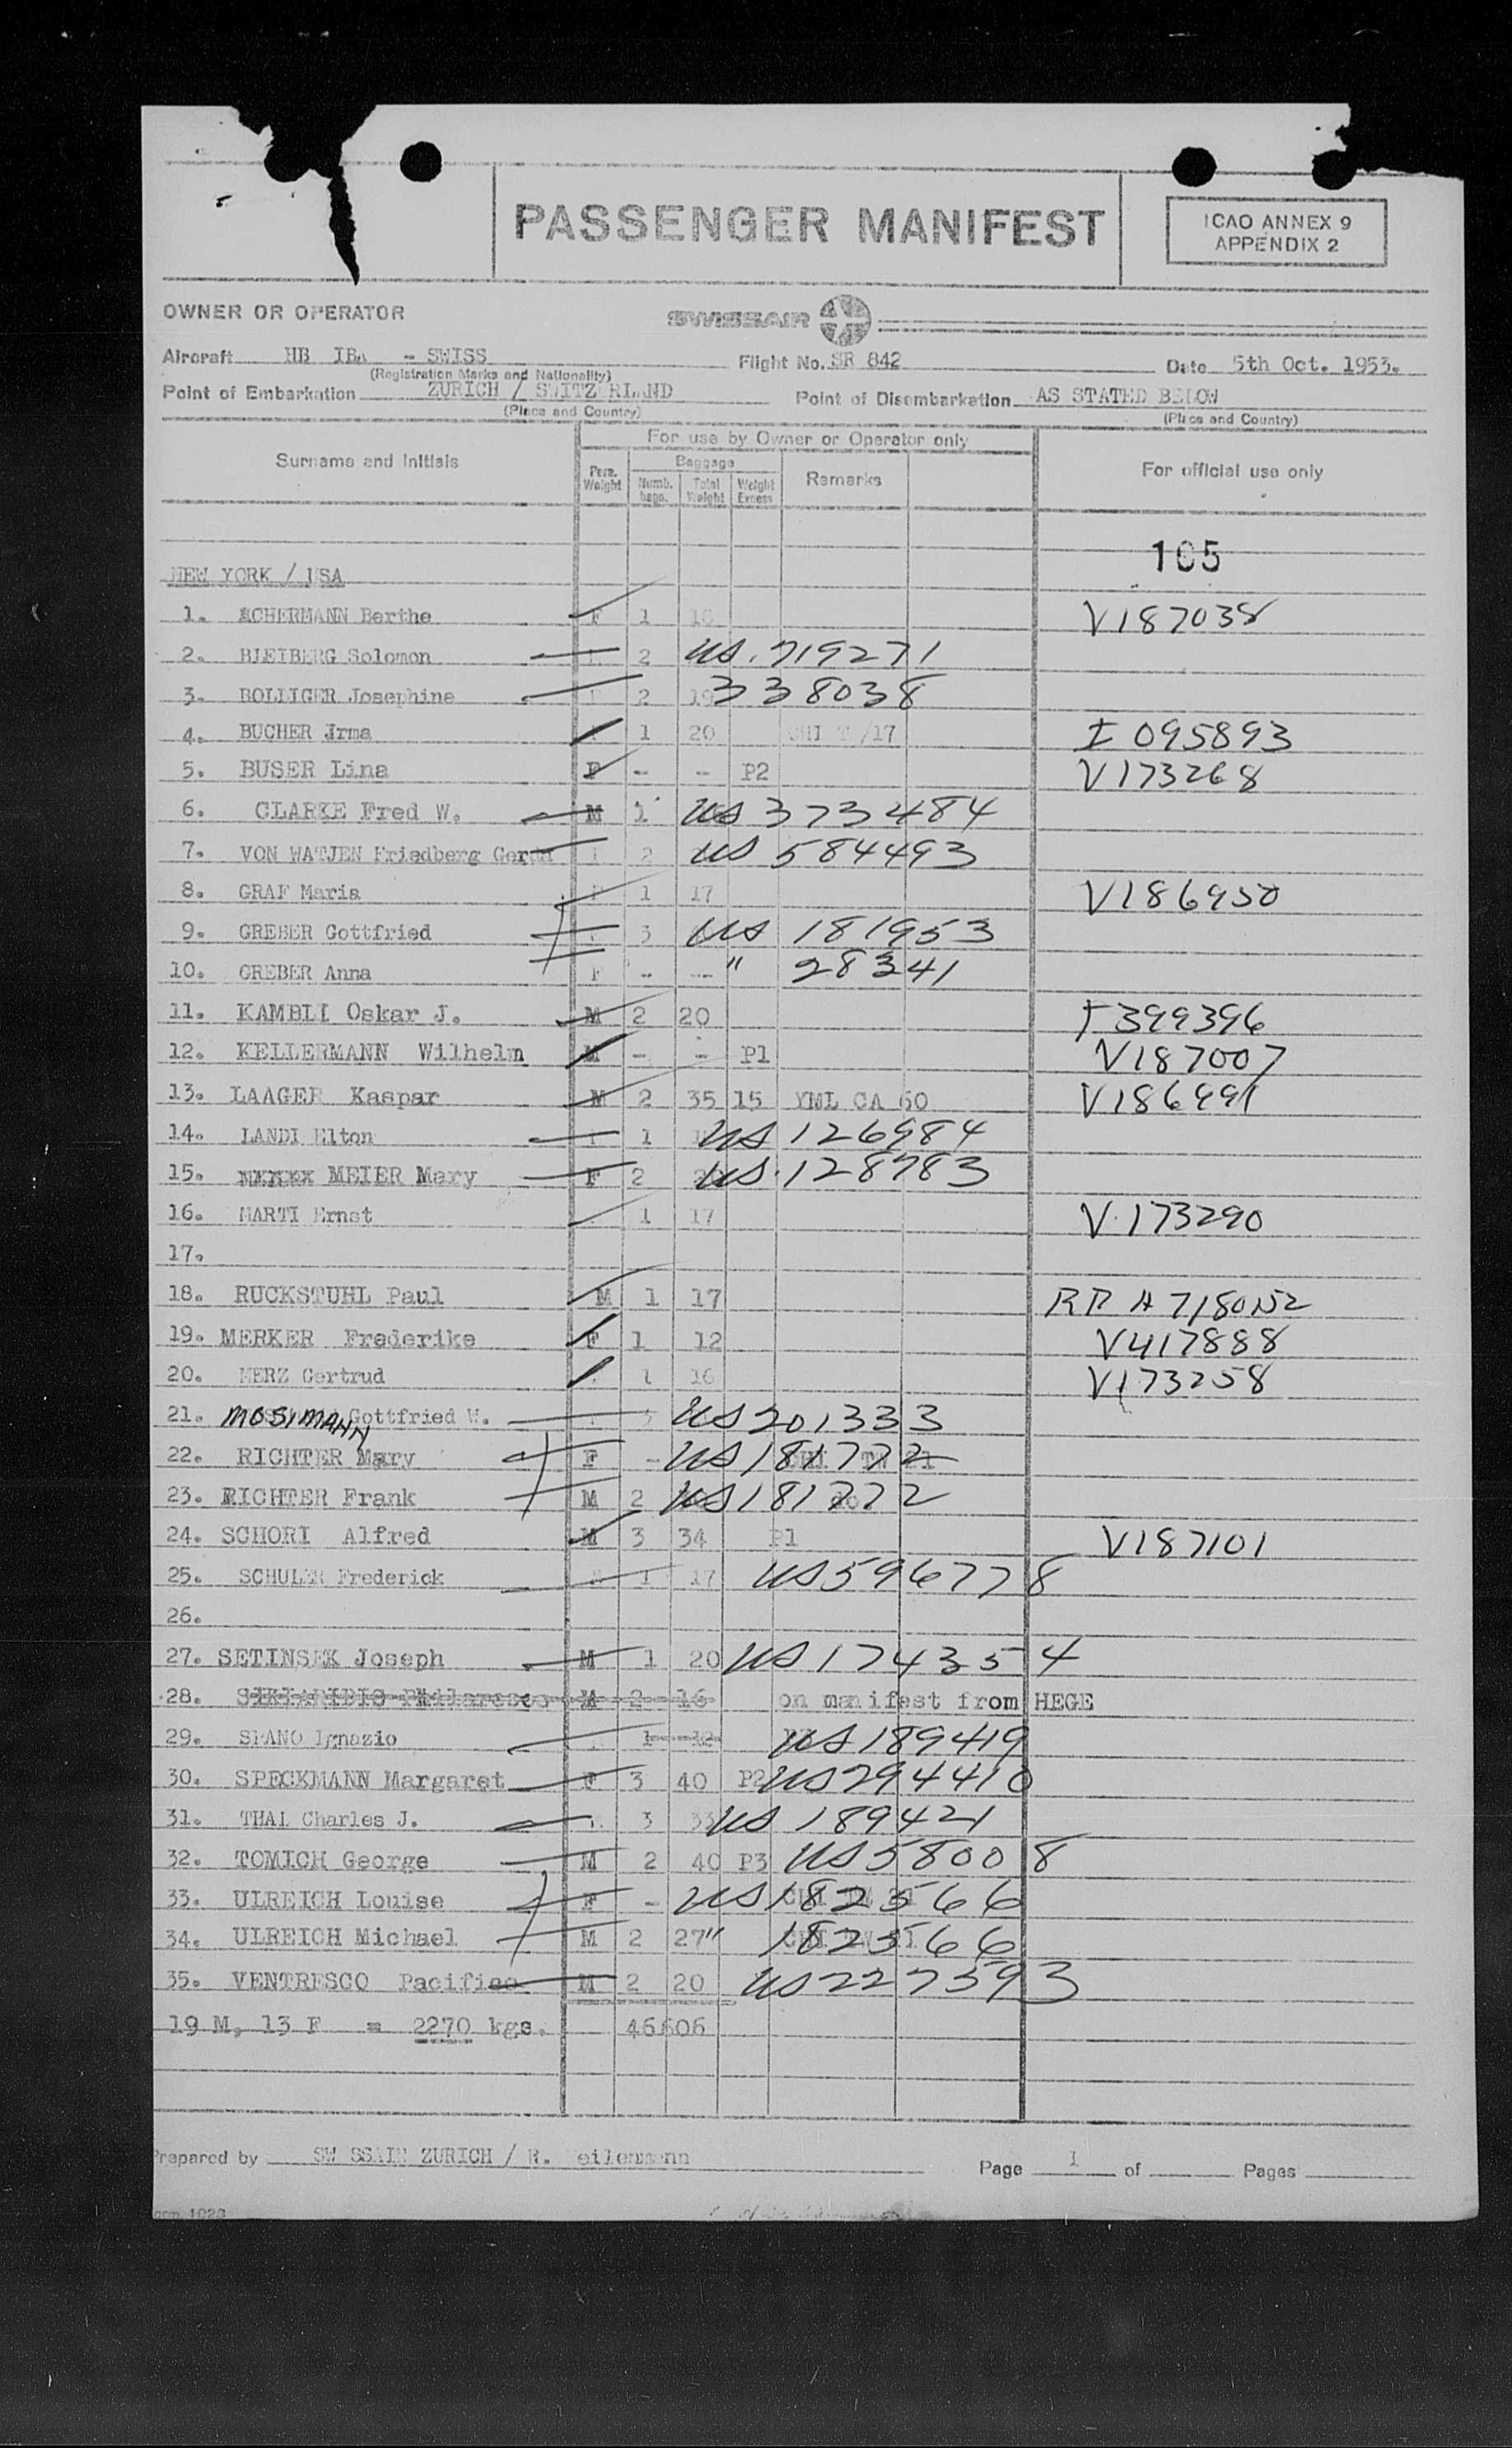 PASSENGER MANIFEST
ICAO ANNEX 9
APPENDIX 2
OWNER OR OPERATOR SWISSAIR
Aircraft HB IBA - SWISS Flight No. SR 842 Date 5th Oct. 1953.
(Registration Marks and Nationality)
Point of Embarkation ZURICH / SWITZERLAND Point of Disembarkation AS STATED BELOW
(Place and Country) (Place and Country)
Surname and Initials For use by Owner or Operator only For official use only
Pers. Weight Baggage Numb. bags. Total Weight Weight Excess Remarks
105
NEW YORK / USA
1. ACHERMANN Berthe F 1 18 V187038
2. BLEIBERG Solomon 2 US. 719271
3. BOLLIGER Josephine 2 19 338038
4. BUCHER Irma 1 20 /17 I 095893
5. BUSER Lina F - - P2 V173268
6. CLARKE Fred W. M 1 US 373484
7. VON WATJEN Friedberg 2 US 584493
8. GRAF Maria F 1 17 V186950
9. GREBER Gottfried 3 US 181953
10. GREBER Anna F - -- " 28341
11. KAMBLI Oskar J. M 2 20 I 399396
12. KELLERMANN Wilhelm M - - P1 V187007
13. LAAGER Kaspar M 2 35 15 YML CA 60 V186991
14. LANDI Elton 1 US 126984
15. MEIER Mary F 2 US. 128783
16. MARTI Ernst 1 17 V.173290
17.
18. RUCKSTUHL Paul M 1 17 RP A 7180152
19. MERKER Frederike F 1 12 V417888
20. MERZ Gertrud 1 16 V173258
21. MOSIMANN Gottfried W. 3 US201333
22. RICHTER Mary F - US181772
23. RICHTER Frank M 2 US181772
24. SCHORI Alfred M 3 34 P1 V187101
25. SCHULER Frederick 1 17 US596778
26.
27. SETINSEK Joseph M 1 20 US174354
28. M 2 16 on manifest from HEGE
29. SPANO Ignazio 1 12 US189419
30. SPECKMANN Margaret F 3 40 P2 US294410
31. THAL Charles J. 3 33 US 189421
32. TOMICH George M 2 40 P3 US58008
33. ULREICH Louise F - US182566
34. ULREICH Michael M 2 27 " 182566
35. VENTRESCO Pacifico M 2 20 US227593
19 M, 13 F = 2270 kgs. 46606
Prepared by SWISSAIR ZURICH / R. Page 1 of Pages